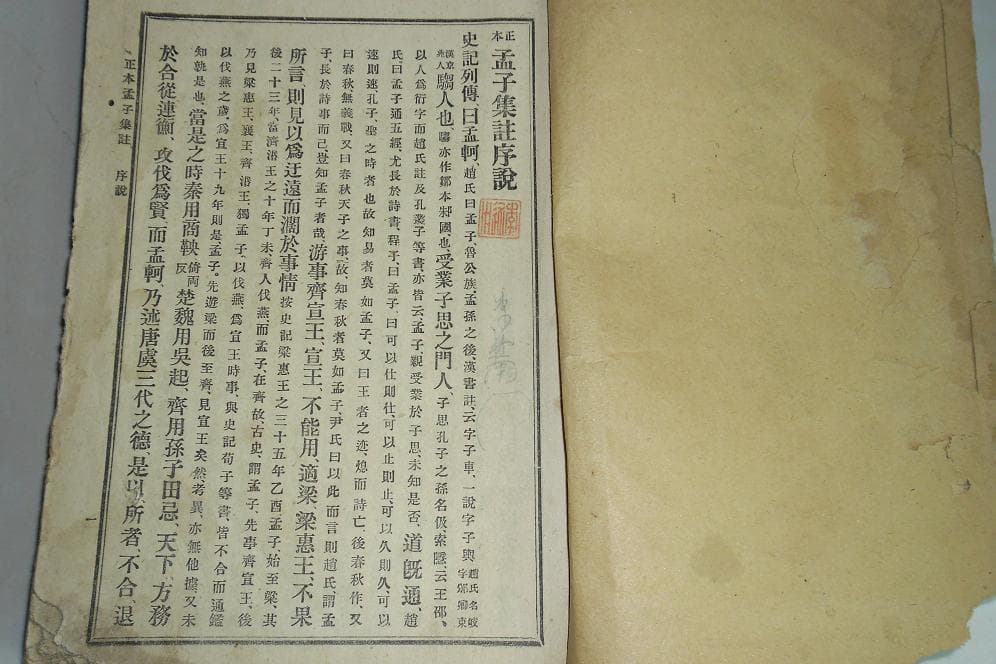 正本 孟子集註序說
史記列傳、曰孟軻、趙氏曰孟子魯公族、孟孫之後、漢書註、云字子車、一說字子輿、趙氏名岐字邠卿東
漢京兆人騶人也、騶亦作鄒本邾國也、受業子思之門人、子思孔子之孫名伋、索隱、云王邵、
以人爲衍字而趙氏註及孔叢子等書、亦皆云、孟子、親受業於子思、未知是否、道旣通、趙
氏曰孟子通五經尤長於詩書、程子曰、孟子、曰可以仕則仕、可以止則止、可以久則久、可以
速則速、孔子、聖之時者也故知易者莫如孟子、又曰王者之迹、熄而詩亡、後春秋作、又
曰春秋無義戰、又曰春秋天子之事、故、知春秋者莫如孟子、尹氏曰以此而言則趙氏、謂孟
子、長於詩書而己、豈知孟子者哉、游事齊宣王、宣王、不能用、適梁、梁惠王、不果
所言、則見以爲迂遠而濶於事情、按史記梁惠王之三十五年乙酉孟子、始至梁、其
後二十三年、當濟湣王之十年丁未、齊人伐燕、而孟子、在齊故、古史、謂孟子、先事齊宣王、後
乃見梁惠王、襄王、齊湣王、獨孟子、以伐燕、爲宣王時事、與史記荀子等書、皆不合而通鑑
以伐燕之歲、爲宣王十九年則是、孟子。先遊梁而後至齊、見宣王矣、然、考異、亦無他據、又未
知孰是也、當是之時秦用商鞅、倚兩反楚魏用吳起、齊用孫子田忌、天下、方務
於合從連衡、攻伐爲賢、而孟軻、乃述唐虞三代之德、是以、所者、不合、退
正本孟子集註 序說